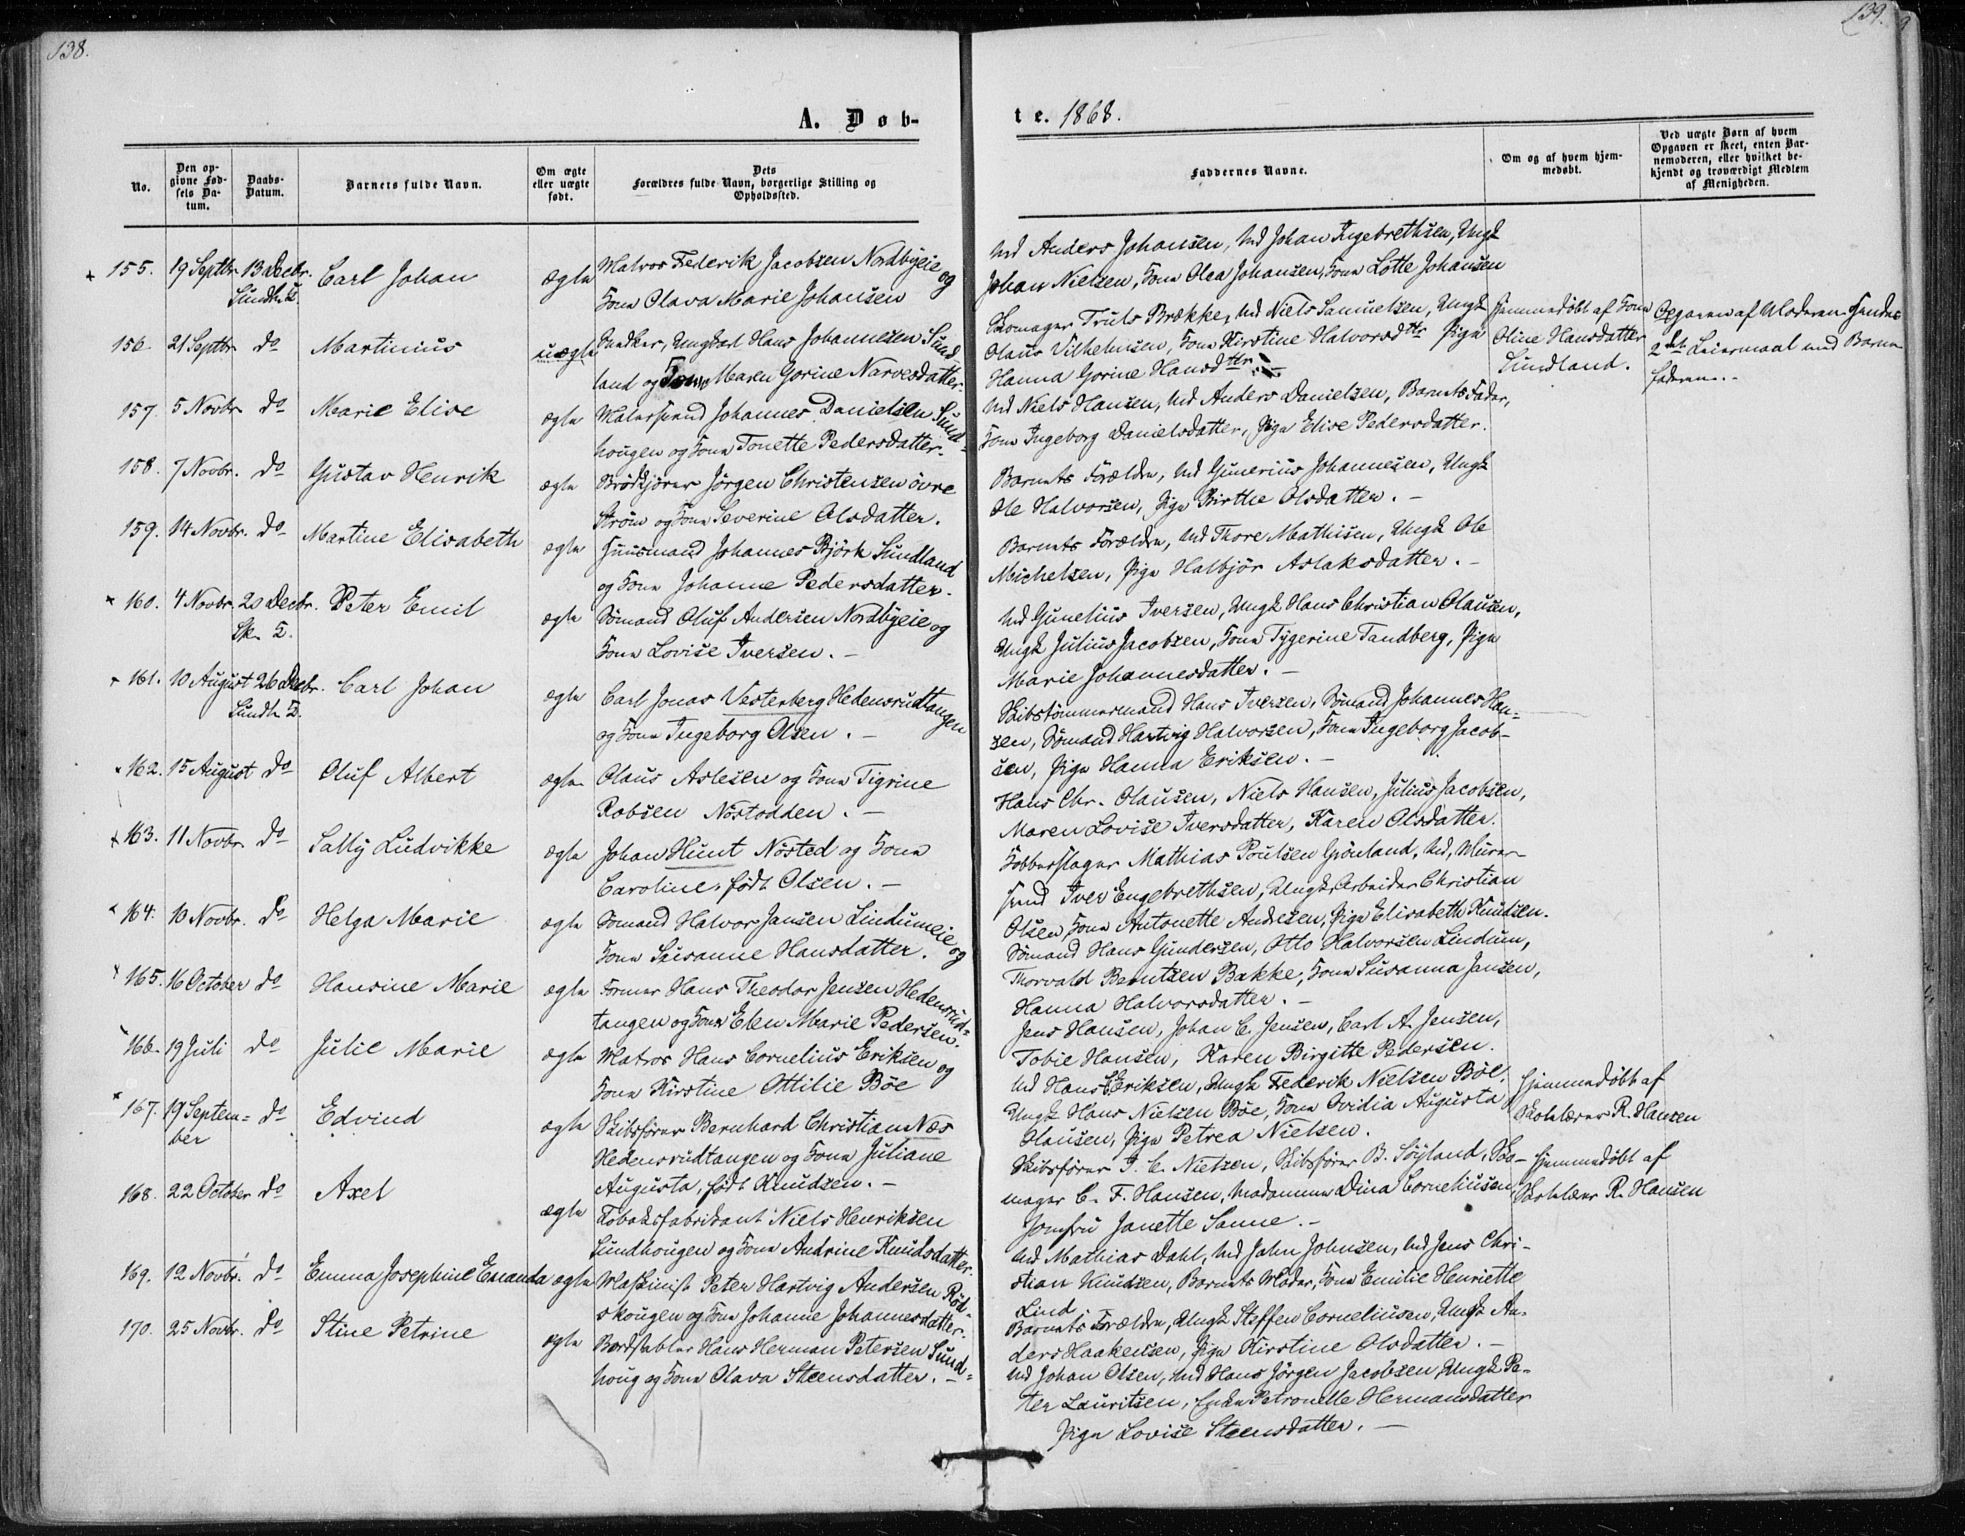 138.
A. Døb-
No.
Den opgivne Fødsels Datum.
Daabs-Datum.
Barnets fulde Navn.
Om ægte eller uægte født.
Dets Forældres fulde Navn, borgerlige Stilling og Opholdssted.
155. 19 Septbr. 13 Decbr. Carl Johan ægte Matros Federik Jacobsen Nordbyeie og
Sundh. K. Kone Olava Marie Johansen
156. 21 Septbr. do Martinius uægte Ungkarl Hans Johannesen Sund
land og Maren Gorine Narvesdatter.
157. 5 Novbr. do Marie Elise ægte Malersvend Johannes Danielsen Sund-
hougen og Kone Tonette Pedersdatter.
158. 7 Novbr. do Gustav Henrik ægte Brødkjører Jørgen Christensen øvre
Strøm og Kone Severine Olsdatter.
159. 14 Novbr. do Martine Elisabeth ægte Huusmand Johannes Bjørk Sundland
og Kone Johanne Pedersdatter.
160. 4 Novbr. 20 Decbr. Peter Emil ægte Sømand Oluf Andersen Nordbyeie og
Sk. K. Kone Lovise Iversen. -
161. 10 August 26 Decbr. Carl Johan ægte Carl Jonas Vesterberg Hedensrudtangen
Sundh. K. og Kone Ingeborg Olsen. -
162. 15 August do Oluf Albert ægte Olaus Aslesen og Kone Tigrine
Robsen Nøstodden. -
163. 11 Novbr. do Sally Ludvikke ægte Johan Hunt Nøsted og Kone
Caroline, født Olsen. -
164. 10 Novbr. do Helga Marie ægte Sømand Halvor Jansen Lindumeie og
Kone Susanne Hansdatter.
165. 16 October do Hansine Marie ægte Former Hans Theodor Jensen Hedensrud-
tangen og Kone Elen Marie Pedersen.
166. 19 Juli do Julie Marie ægte Matros Hans Cornelius Eriksen og
Kone Kirstine Ottilie Bøe
167. 19 Septem- do Edvind ægte Skibsfører Bernhard Christian Næs
ber Hedensrudtangen og Kone Juliane
Augusta, født Knudsen. -
168. 22 October do Axel ægte Tobaksfabrikant Niels Henriksen
Sundhougen og Kone Andrine Knudsdatter.
169. 12 Novbr. do Emma Josephine Emanda ægte Maskinist Peter Hartvig Andersen Rød-
skougen og Kone Johanne Johannesdatter.
170. 25 Novbr. do Stine Petrine ægte Bordstabler Hans Herman Petersen Sund-
houg og Kone Olava Steensdatter. -
139.
9
te. 1868.
Faddernes Navne.
Om og af hvem hjemmedøbt.
Ved uægte Børn af hvem Opgaven er skeet, enten Barnemoderen, eller hvilket bekjendt og troværdigt Medlem af Menigheden.
Md Anders Johansen, Md Johan Ingebrethsen, Ungk
Johan Nielsen, Kone Olea Johansen, Kone Lotte Johansen
Skomager Truls Brække, Md Niels Samuelsen, Ungk Hjemmedøbt af Kone Opgaven af Moderen. Hendes
Olaus Vilhelmsen, Kone Kirstine Halvorsdtr Pige Oline Hansdatter 2det Leiermaal med Barne
Hanna Gorine Hansdtter. - Sundland. faderen. -
Md Niels Hansen, Md Anders Danielsen, Barnets Fader,
Kone Ingeborg Danielsdatter, Pige Elise Pedersdatter.
Barnets Forældre, Md Gunerius Johannesen, Ungk
Ole Halvorsen, Pige Birthe Olsdatter. -
Barnets Forældre, Md Thore Mathisen, Ungk Ole
Michelsen, Pige Halbjør Aslaksdatter. -
Md Gunelius Iversen, Ungk Hans Christian Olausen,
Ungk Julius Jacobsen, Kone Tygerine Tandberg, Pige
Marie Johannesdatter. -
Skibstømmermand Hans Iversen, Sømand Johannes Han-
sen, Sømand Hartvig Halvorsen, Kone Ingeborg Jacob-
sen, Pige Hanna Eriksen. -
Hans Chr. Olausen, Niels Hansen, Julius Jacobsen,
Maren Lovise Iversdatter, Karen Olsdatter.
Kobberslager Mathias Poulsen Grønland, Md, Murer-
svend Iver Engebrethsen, Ungk Arbeider Christian
Olsen, Kone Antonette Andresen, Pige Elisabeth Knudsen.
Sømand Hans Gundersen, Otto Halvorsen Lindum,
Thorvald Berntsen Bakke, Kone Susanna Jensen,
Hanna Halvorsdatter. -
Jens Hansen, Johan C. Jensen, Carl A. Jensen,
Tobie Hansen, Karen Birgitte Pedersen.
Md Hans Eriksen, Ungk Federik Nielsen Bøe, Hjemmedøbt af
Ungk Hans Nielsen Bøe, Kone Ovidia Augusta Skolelærer R. Hansen
Olausen, Pige Petrea Nielsen.
Skibsfører J. C. Nielsen, Skibsfører B. Søyland, Sko- Hjemmedøbt af
mager C. F. Hansen, Madamme Dina Corneliusen, Skolelærer R. Hansen
Jomfru Janette Sanne. -
Md Mathias Dahl, Md John Johnsen, Md Jens Chri-
stian Knudsen, Barnets Moder, Kone Emilie Henriette
Lind
Barnets Forældre, Ungk Steffen Corneliusen, Ungk An-
ders Haakensen, Pige Kirstine Olsdatter. -
Md Johan Olsen, Md Hans Jørgen Jacobsen, Ungk Pe-
ter Lauritsen, Enke Petronelle Hermansdatter
Pige Lovise Steensdatter. -